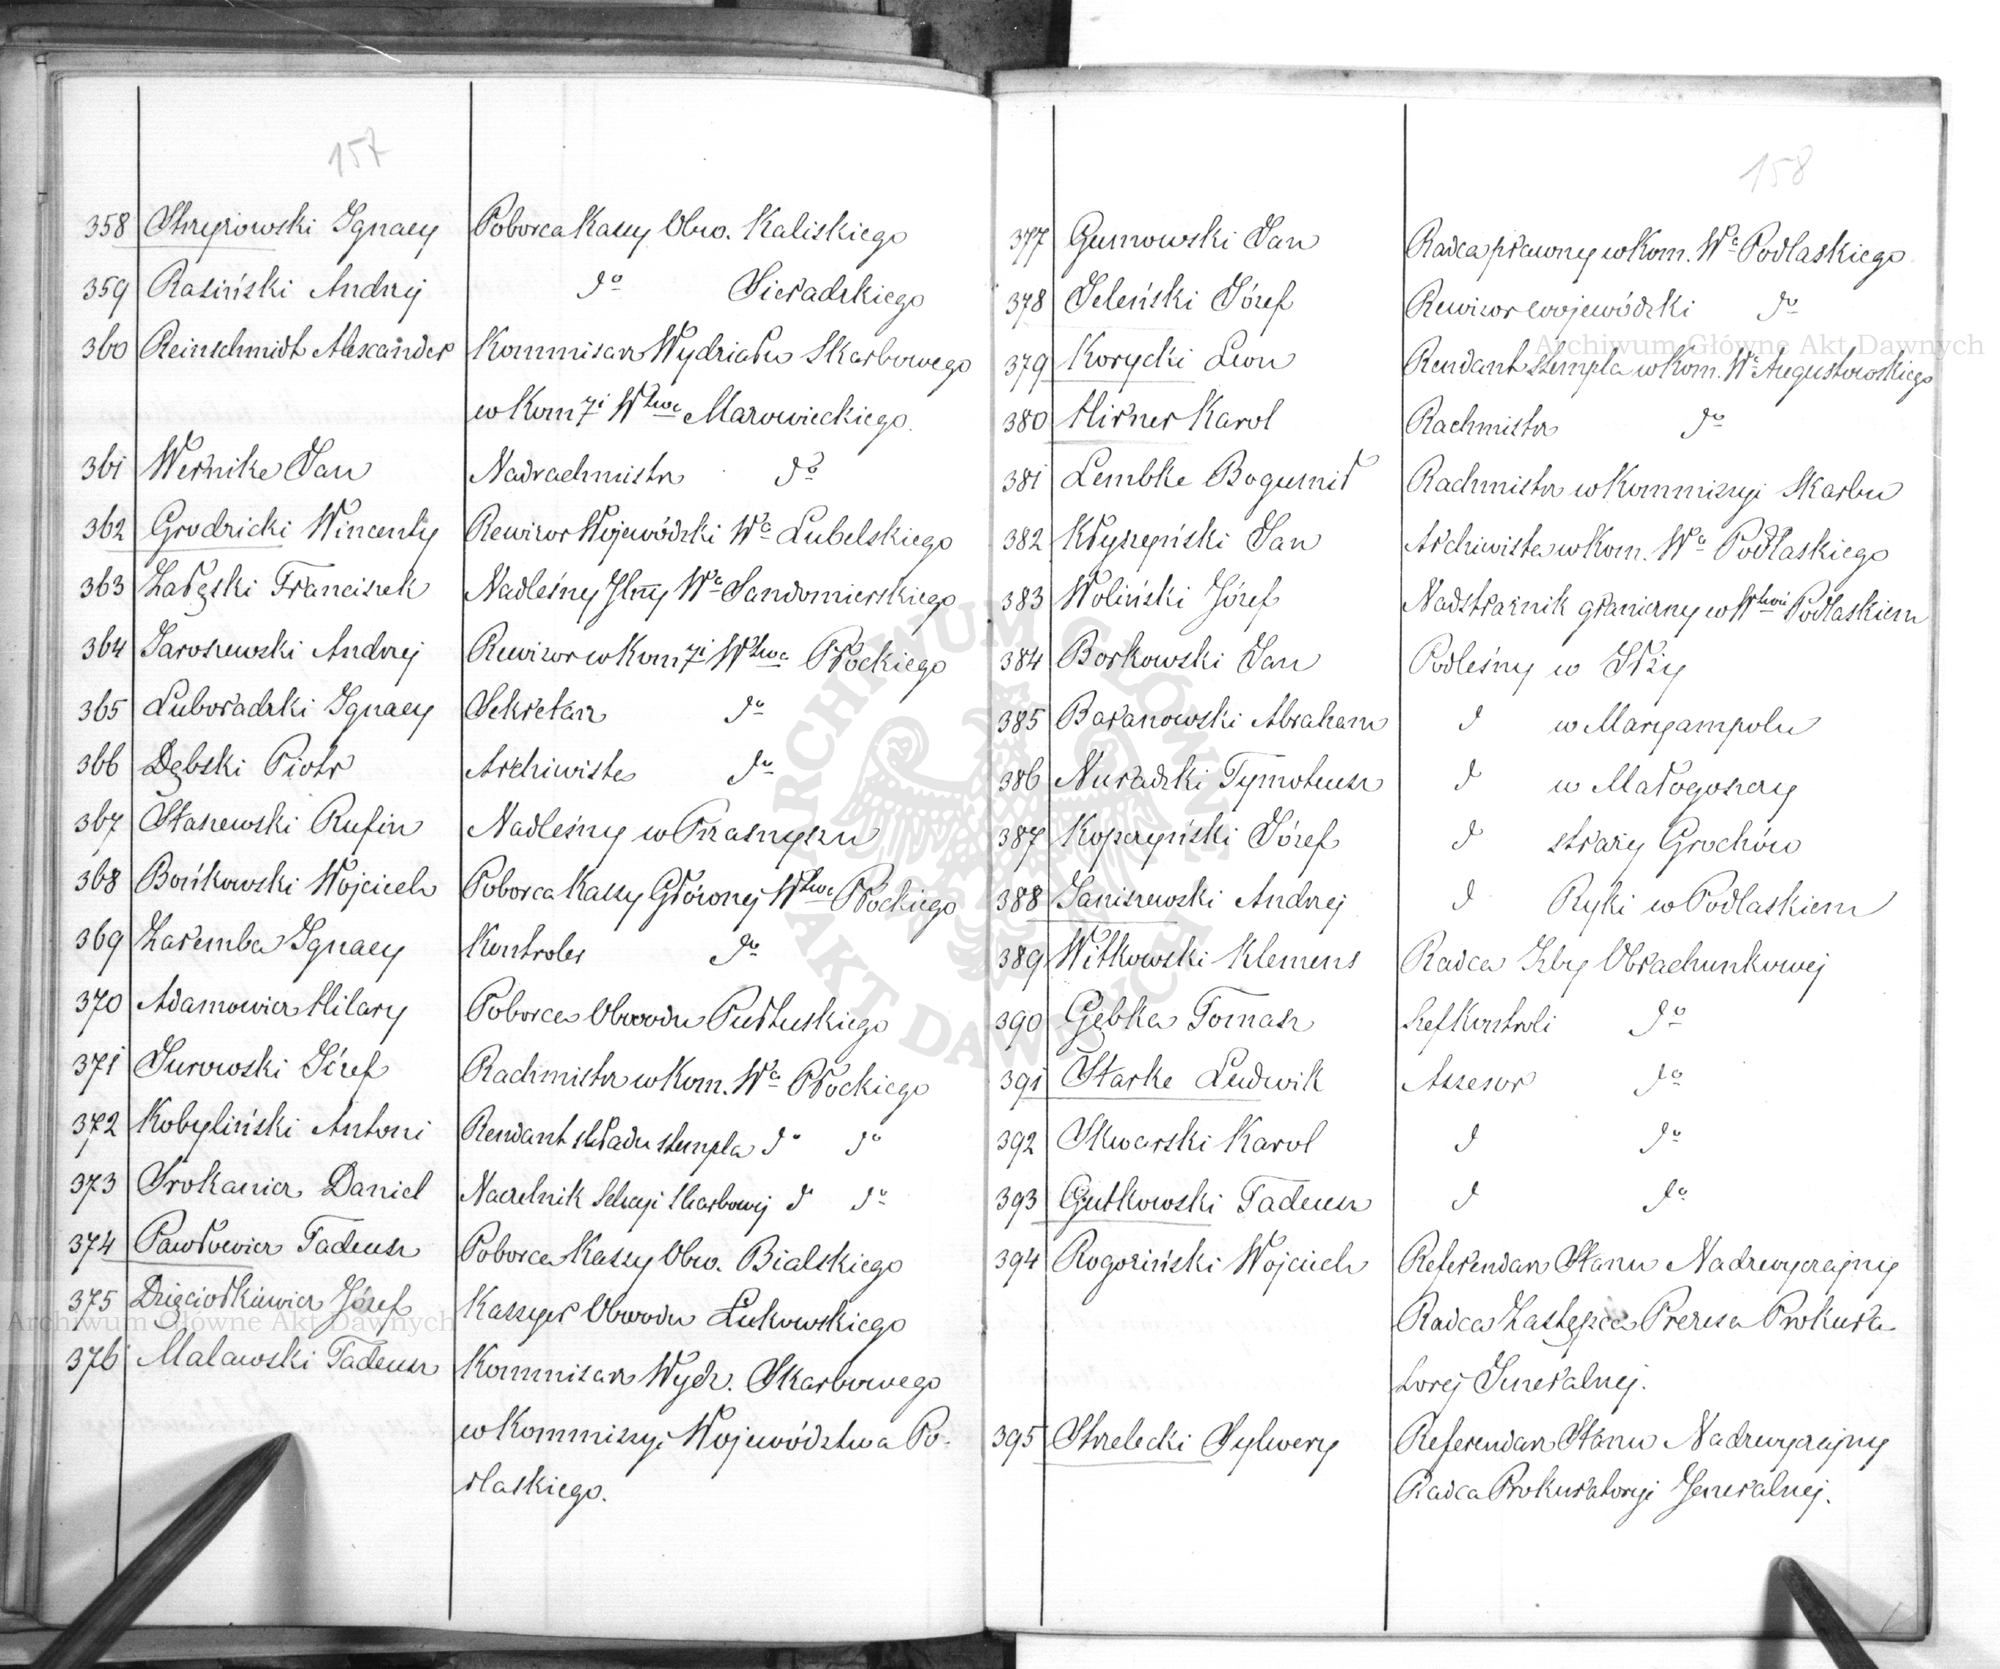 157
358 Skrzyżowski Ignacy Poborca Kassy Obw. Kaliskiego
359 Rasiński Andrzej do Sieradzkiego
360 Reinschmidt Alexander Kommisarz Wydziału Skarbowego
w Kommi Wztwa Mazowieckiego.
361 Wernike Jan Nadrachmistrz do
362 Grodzicki Wincenty Rewizor Wojewódzki Wa Lubelskiego
363 Załęski Franciszek Nadleśny Wa Sandomierskiego
364 Jaroszewski Andrzej Rewizor w Kommi Wztwa Płockiego
365 Luboradzki Ignacy Sekretarz do
366 Dębski Piotr Archiwista do
367 Staszewski Rufin Nadleśny w Przasnyszu
368 Bońkowski Wojciech Poborca Kassy Głównej Wztwa Płockiego
369 Zaremba Ignacy Kontroler do
370 Adamowicz Hilary Poborca Obwodu Pułtuskiego
371 Jurowski Józef Rachmistrz w Kom. Wa Płockiego
372 Kobyliński Antoni Rendant składu stempla do do
373 Srokanicz Daniel Naczelnik Sekcyi Skarbowej d do
374 Pawłowicz Tadeusz Poborca Kassy Obw. Bialskiego
375 Dzięciołkiewicz Józef Kassyer Obwodu Łukowskiego
376 Malawski Tadeusz Kommisarz Wydz. Skarbowego
w Kommissyi Województwa Po-
dlaskiego.
158
377 Gumowski Jan Radca prawny w Kom. Wa Podlaskiego
378 Jeleński Józef Rewizor wojewódzki do
379 Korycki Leon Rendant stempla w Kom. Wa Augustowskiego
380 Hirner Karol Rachmistrz do
381 Lembke Bogumił Rachmistrz w Kommissyi Skarbu
382 Kłyszyński Jan Archiwista w Kom. Wa Podlaskiego
383 Woliński Józef Nadstrażnik graniczny w Wztwie Podlaskiem
384 Borkowski Jan Podleśny w Iłży
385 Baranowski Abraham d w Maryampolu
386 Nuradzki Tymoteusz d w Małogoszczy
387 Kopczyński Józef d straży Grochów
388 Janiszewski Andrzej d Ryki w Podlaskiem
389 Witkowski Klemens Radca Izby Obrachunkowej
390 Gębka Tomasz Szef Kontroli do
391 Starke Ludwik Assesor do
392 Skwarski Karol d do
393 Gutkowski Tadeusz d do
394 Rogoziński Wojciech Referendarz Stanu Nadzwyczajny
Radca Zastępca Prezesa Prokura
toryi Jeneralnej.
395 Strzelecki Sylwery Referendarz Stanu Nadzwyczajny
Radca Prokuratoryi Jeneralnej.
Archiwum Główne Akt Dawnych
Archiwum Główne Akt Dawnych
ARCHIWUM GŁÓWNE AKT DAWNYCH